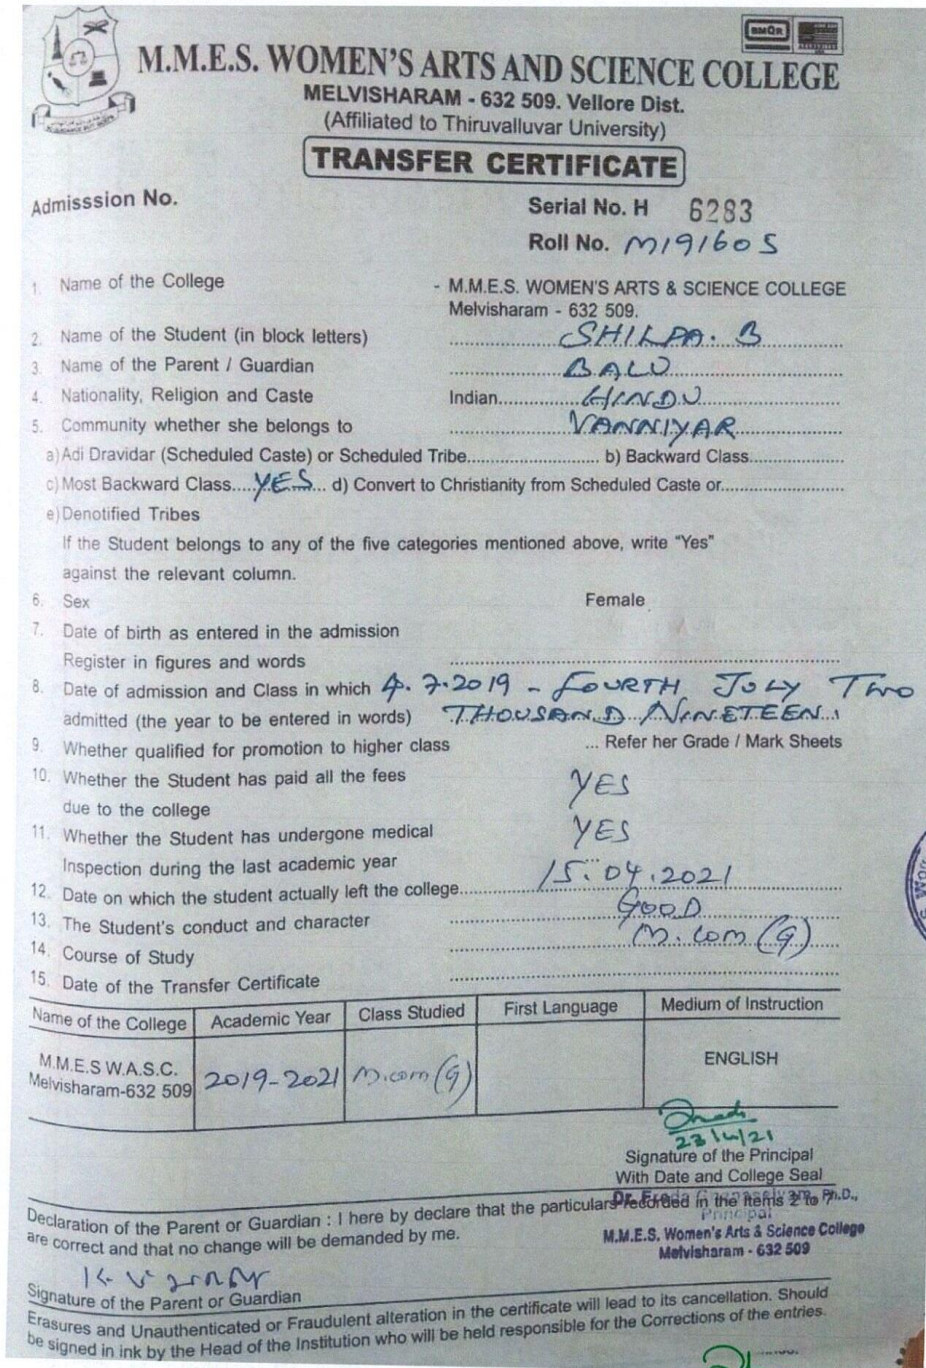 BMQR
M.M.E.S. WOMEN'S ARTS AND SCIENCE COLLEGE
MELVISHARAM - 632 509. Vellore Dist.
(Affiliated to Thiruvalluvar University)
TRANSFER CERTIFICATE
Admisssion No.
Serial No. H 6283
Roll No. M191605
1. Name of the College - M.M.E.S. WOMEN'S ARTS & SCIENCE COLLEGE
Melvisharam - 632 509.
2. Name of the Student (in block letters) SHILPA. B
3. Name of the Parent / Guardian BALU
4. Nationality, Religion and Caste Indian HINDU
5. Community whether she belongs to VANNIYAR
a) Adi Dravidar (Scheduled Caste) or Scheduled Tribe b) Backward Class
c) Most Backward Class YES d) Convert to Christianity from Scheduled Caste or
e) Denotified Tribes
If the Student belongs to any of the five categories mentioned above, write "Yes"
against the relevant column.
6. Sex Female
7. Date of birth as entered in the admission
Register in figures and words
8. Date of admission and Class in which 4.7.2019 - FOURTH JULY TWO
admitted (the year to be entered in words) THOUSAND NINETEEN
9. Whether qualified for promotion to higher class ... Refer her Grade / Mark Sheets
10. Whether the Student has paid all the fees YES
due to the college
11. Whether the Student has undergone medical YES
Inspection during the last academic year
12. Date on which the student actually left the college 15.04.2021
13. The Student's conduct and character GOOD
14. Course of Study M.Com (G)
15. Date of the Transfer Certificate
Name of the College Academic Year Class Studied First Language Medium of Instruction
M.M.E.S W.A.S.C. 2019-2021 M.com (G) ENGLISH
Melvisharam-632 509
23/4/21
Signature of the Principal
With Date and College Seal
Declaration of the Parent or Guardian : I here by declare that the particulars recorded in the Items 2 to 7
are correct and that no change will be demanded by me.
Dr. Freda Gnanaselvam, Ph.D.,
Principal
M.M.E.S. Women's Arts & Science College
Melvisharam - 632 509
Signature of the Parent or Guardian
Erasures and Unauthenticated or Fraudulent alteration in the certificate will lead to its cancellation. Should
be signed in ink by the Head of the Institution who will be held responsible for the Corrections of the entries.